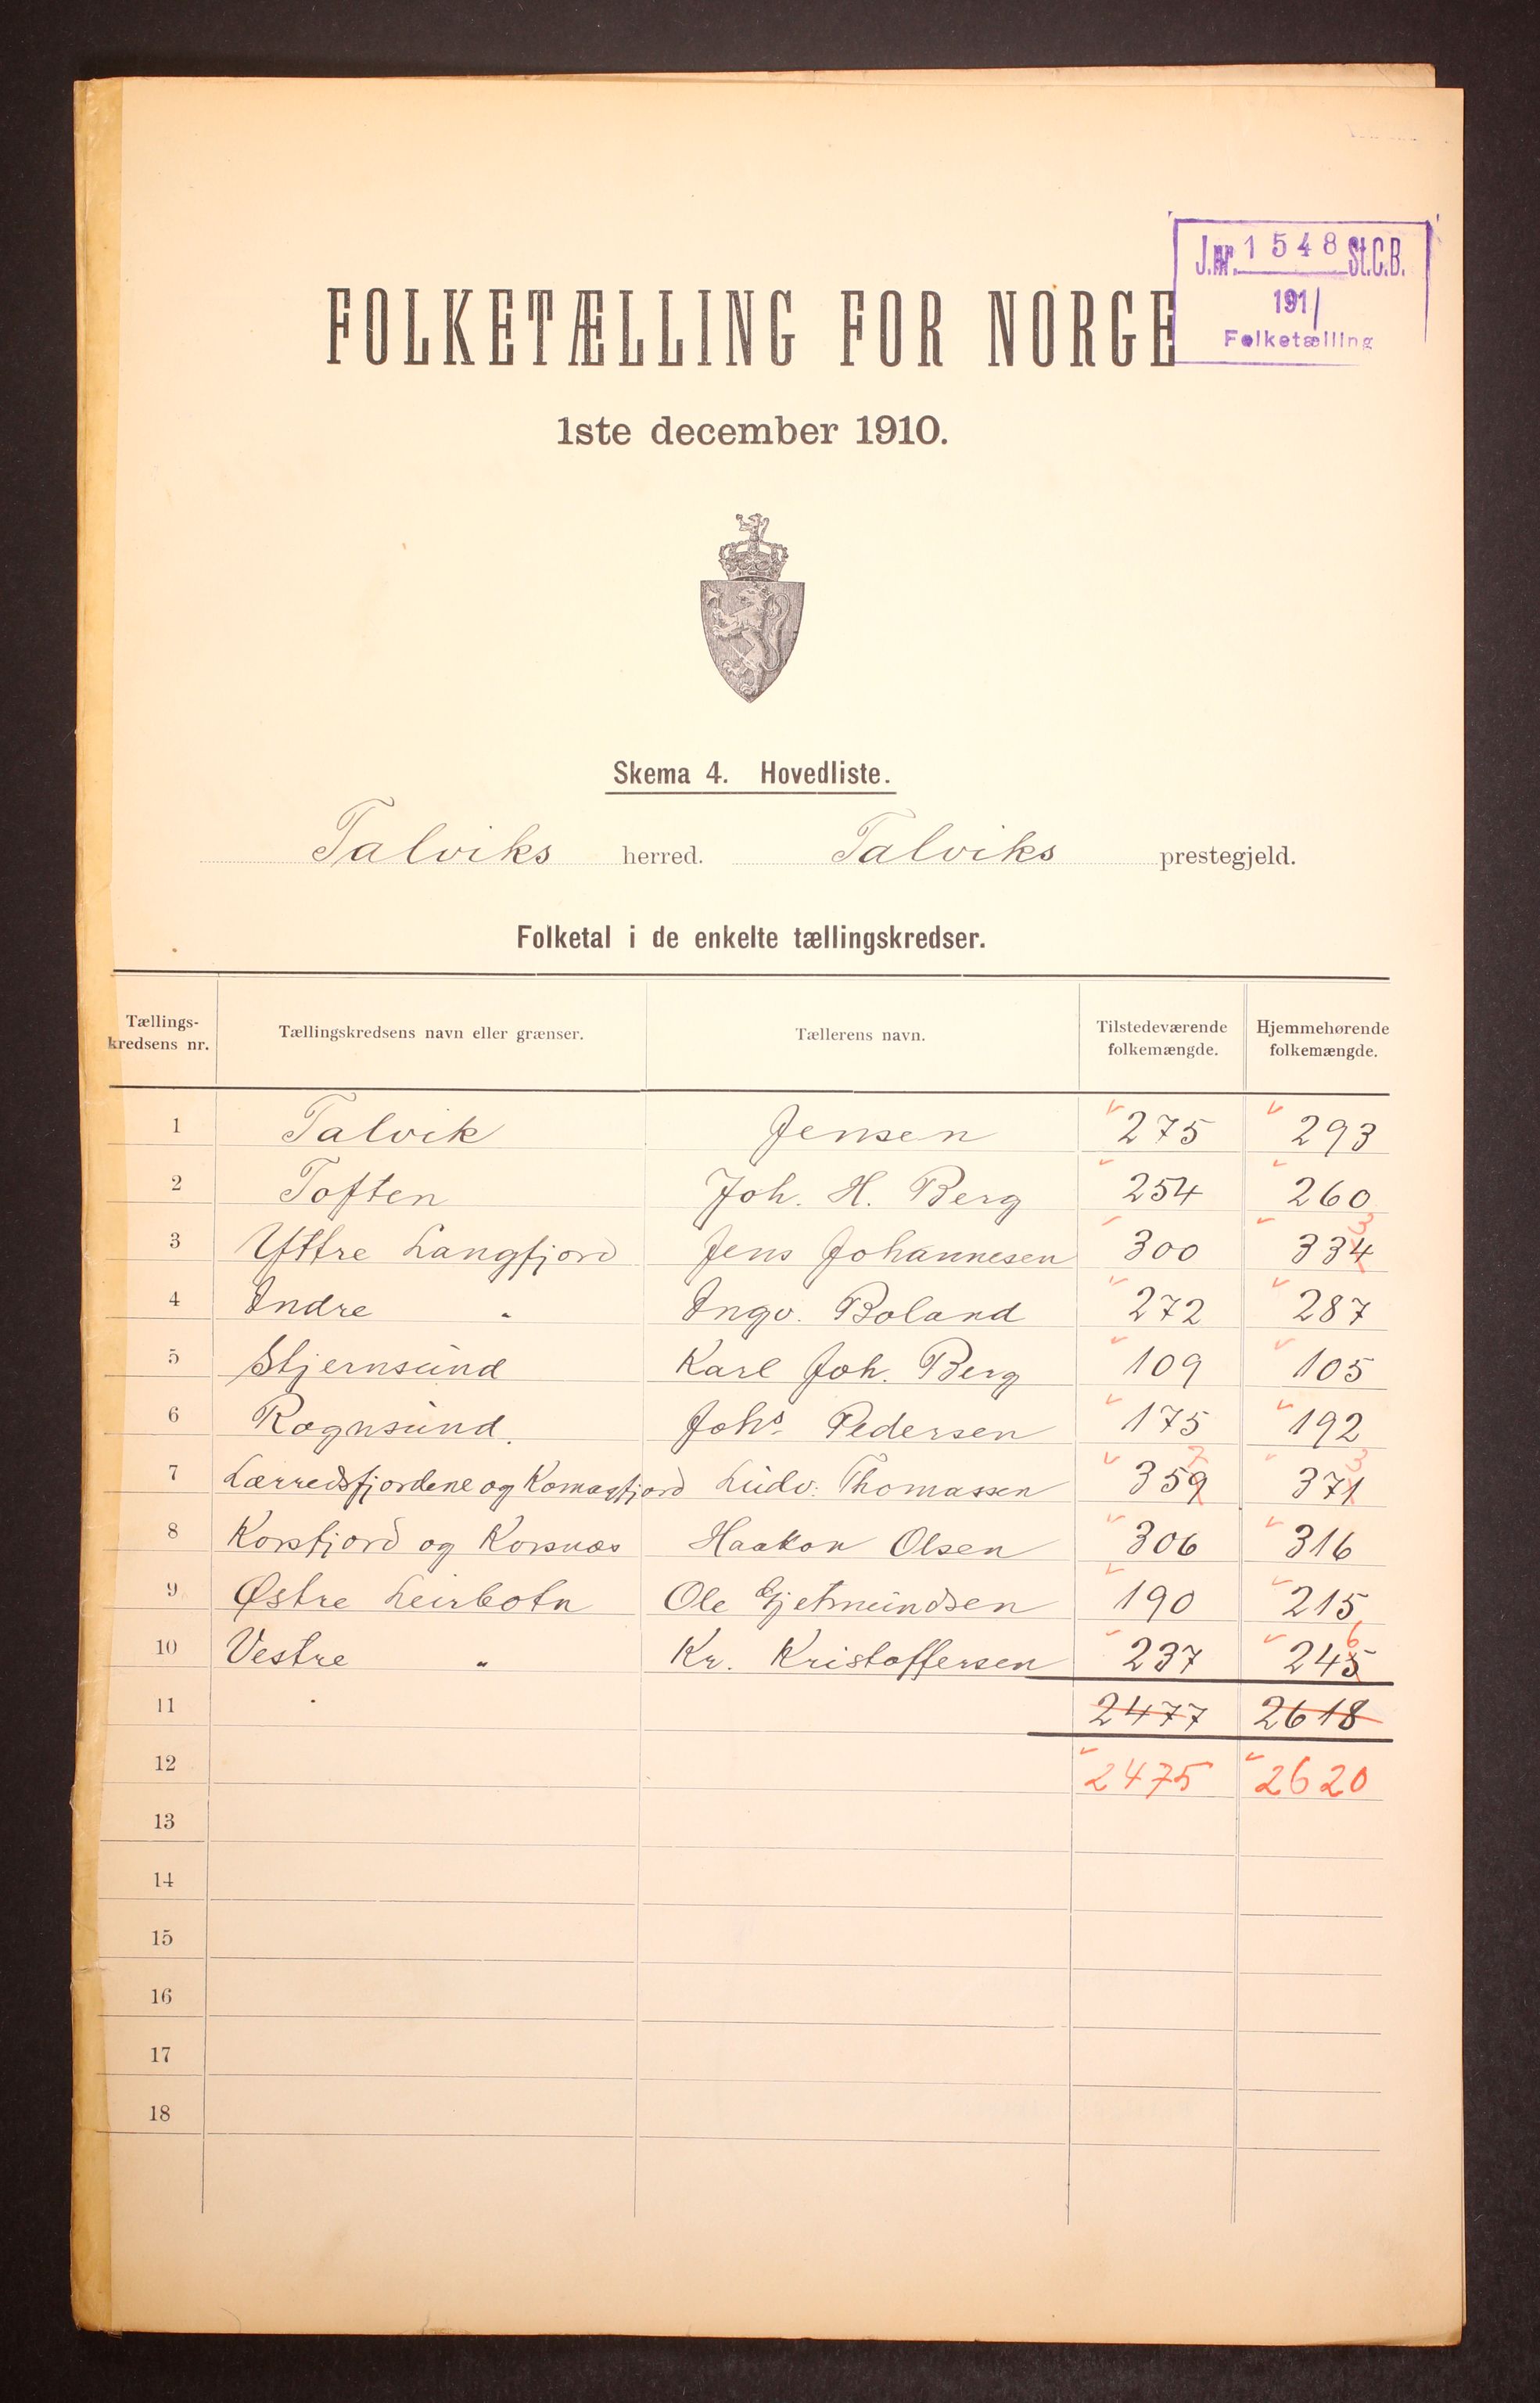 J.nr. 1548 St.C.B.
1911
Folketælling
FOLKETÆLLING FOR NORGE
1ste december 1910.
Skema 4. Hovedliste.
Talviks herred. Talviks prestegjeld.
Folketal i de enkelte tællingskredser.
Tællings-kredsens nr. Tællingskredsens navn eller grænser. Tællerens navn. Tilstedeværende folkemængde. Hjemmehørende folkemængde.
1 Talvik Jensen 275 293
2 Toften Joh. H. Berg 254 260
3 Yttre Langfjord Jens Johannesen 300 334 3
4 Indre " Ingv. Boland 272 287
5 Stjernsund Karl Joh. Berg 109 105
6 Rognsund. Johs. Pedersen 175 192
7 Lærredsfjordene og Komagfjord Ludv: Thomassen 359 7 371 3
8 Korsfjord og Korsnæs Haakon Olsen 306 316
9 Østre Leirbotn Ole Gjetmundsen 190 215
10 Vestre " Kr. Kristoffersen 237 245 6
11 2477 2618
12 2475 2620
13
14
15
16
17
18